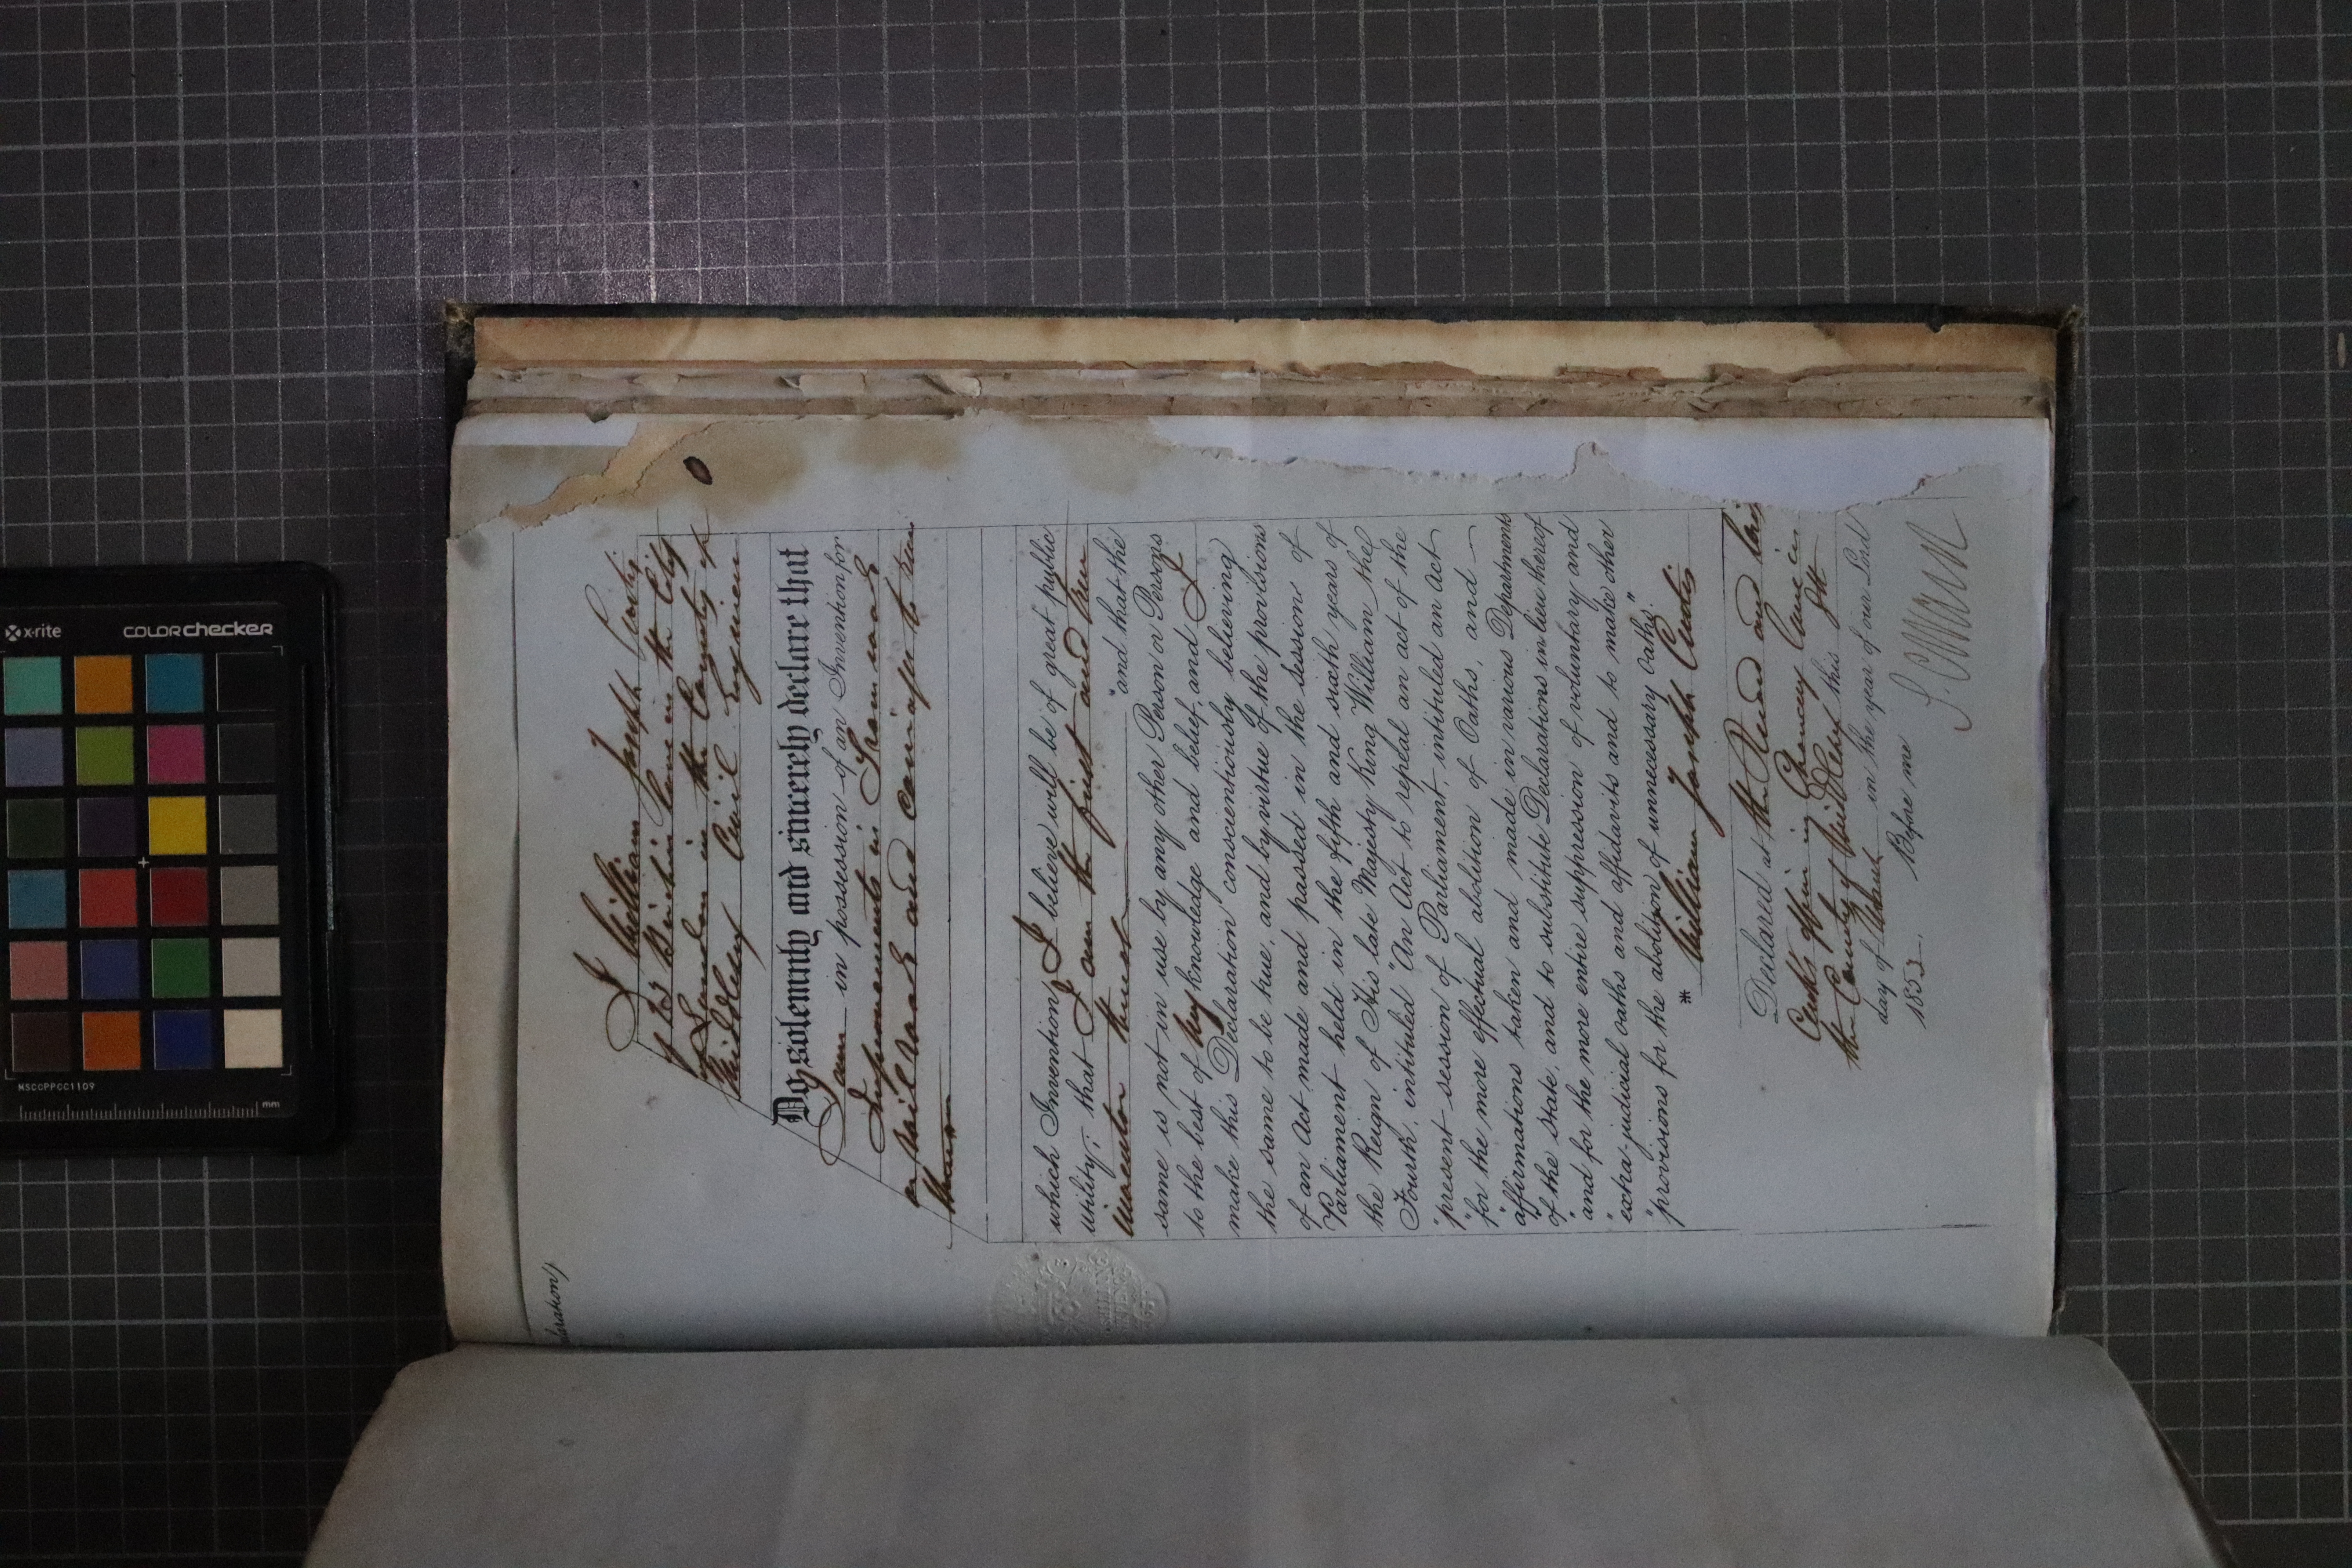 (Declaration)
I William Joseph Curtis
of 23 Birchin Lane in the City
of London in the County of
Middlesex Civil Engineer
Do solemnly and sincerely declare that
I am in possession of an Invention for
Improvements in Tram roads
or Rail roads and carriages to run
thereon
which Invention I believe will be of great public
utility; that I am the first and true
inventor thereof "and that the
same is not in use by any other Person or Persons
to the best of my knowledge and belief, and I
make this Declaration conscientiously believing
the same to be true, and by virtue of the provisions
of an Act made and passed in the sessions of
Parliament held in the fifth and sixth years of
the Reign of His late Majesty King William the
Fourth, intituled "An Act to repeal an act of the
"present session of Parliament, intituled an Act
"for the more effectual abolition of Oaths, and
"affirmations taken and made in various Departments
of the State, and to substitute Declarations in lieu thereof
"and for the more entire suppression of voluntary and
"extra-judicial oaths and affidavits and to make other
"provisions for the abolition of unnecessary oaths."
* William Joseph Curtis
Declared at the and
Clerks office in Chancery Lane in
the County of Middlesex this
day of in the year of our Lord
185
Before me
x-rite COLORchecker
MSCCPPCC1109
mm